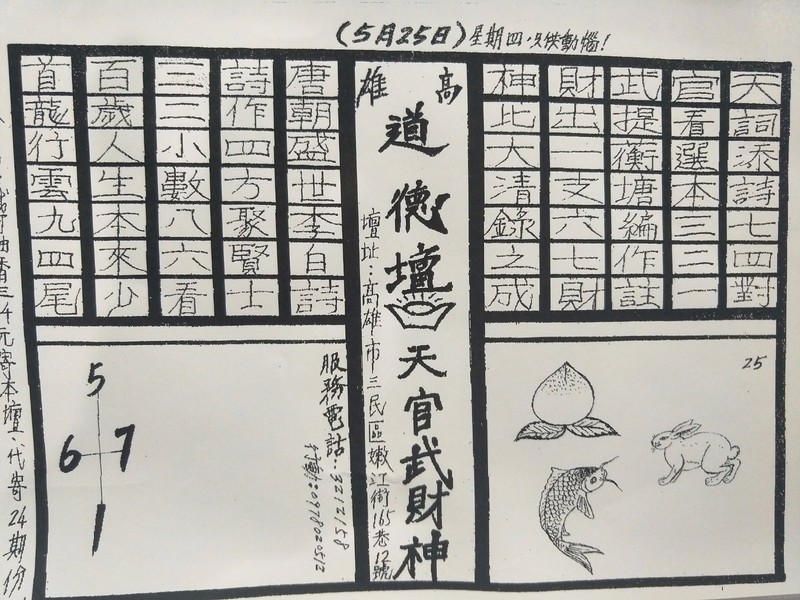 (5月25日)星期四.只供動惱!
天詞添詩七四對
官看選本三二一
武提衡塘編作註
財出一支六七財
神此大清錄之成
25
高雄
道德壇
天官武財神
壇址:高雄市三民區嫩江街165巷12號
唐朝盛世李白詩
詩作四方聚賢士
三二小數八六看
百歲人生本來少
首龍行雲九四尾
服務電話:3212158
行動:0978020512
5
6 7
1
油香三千元寄本壇.代寄24期份